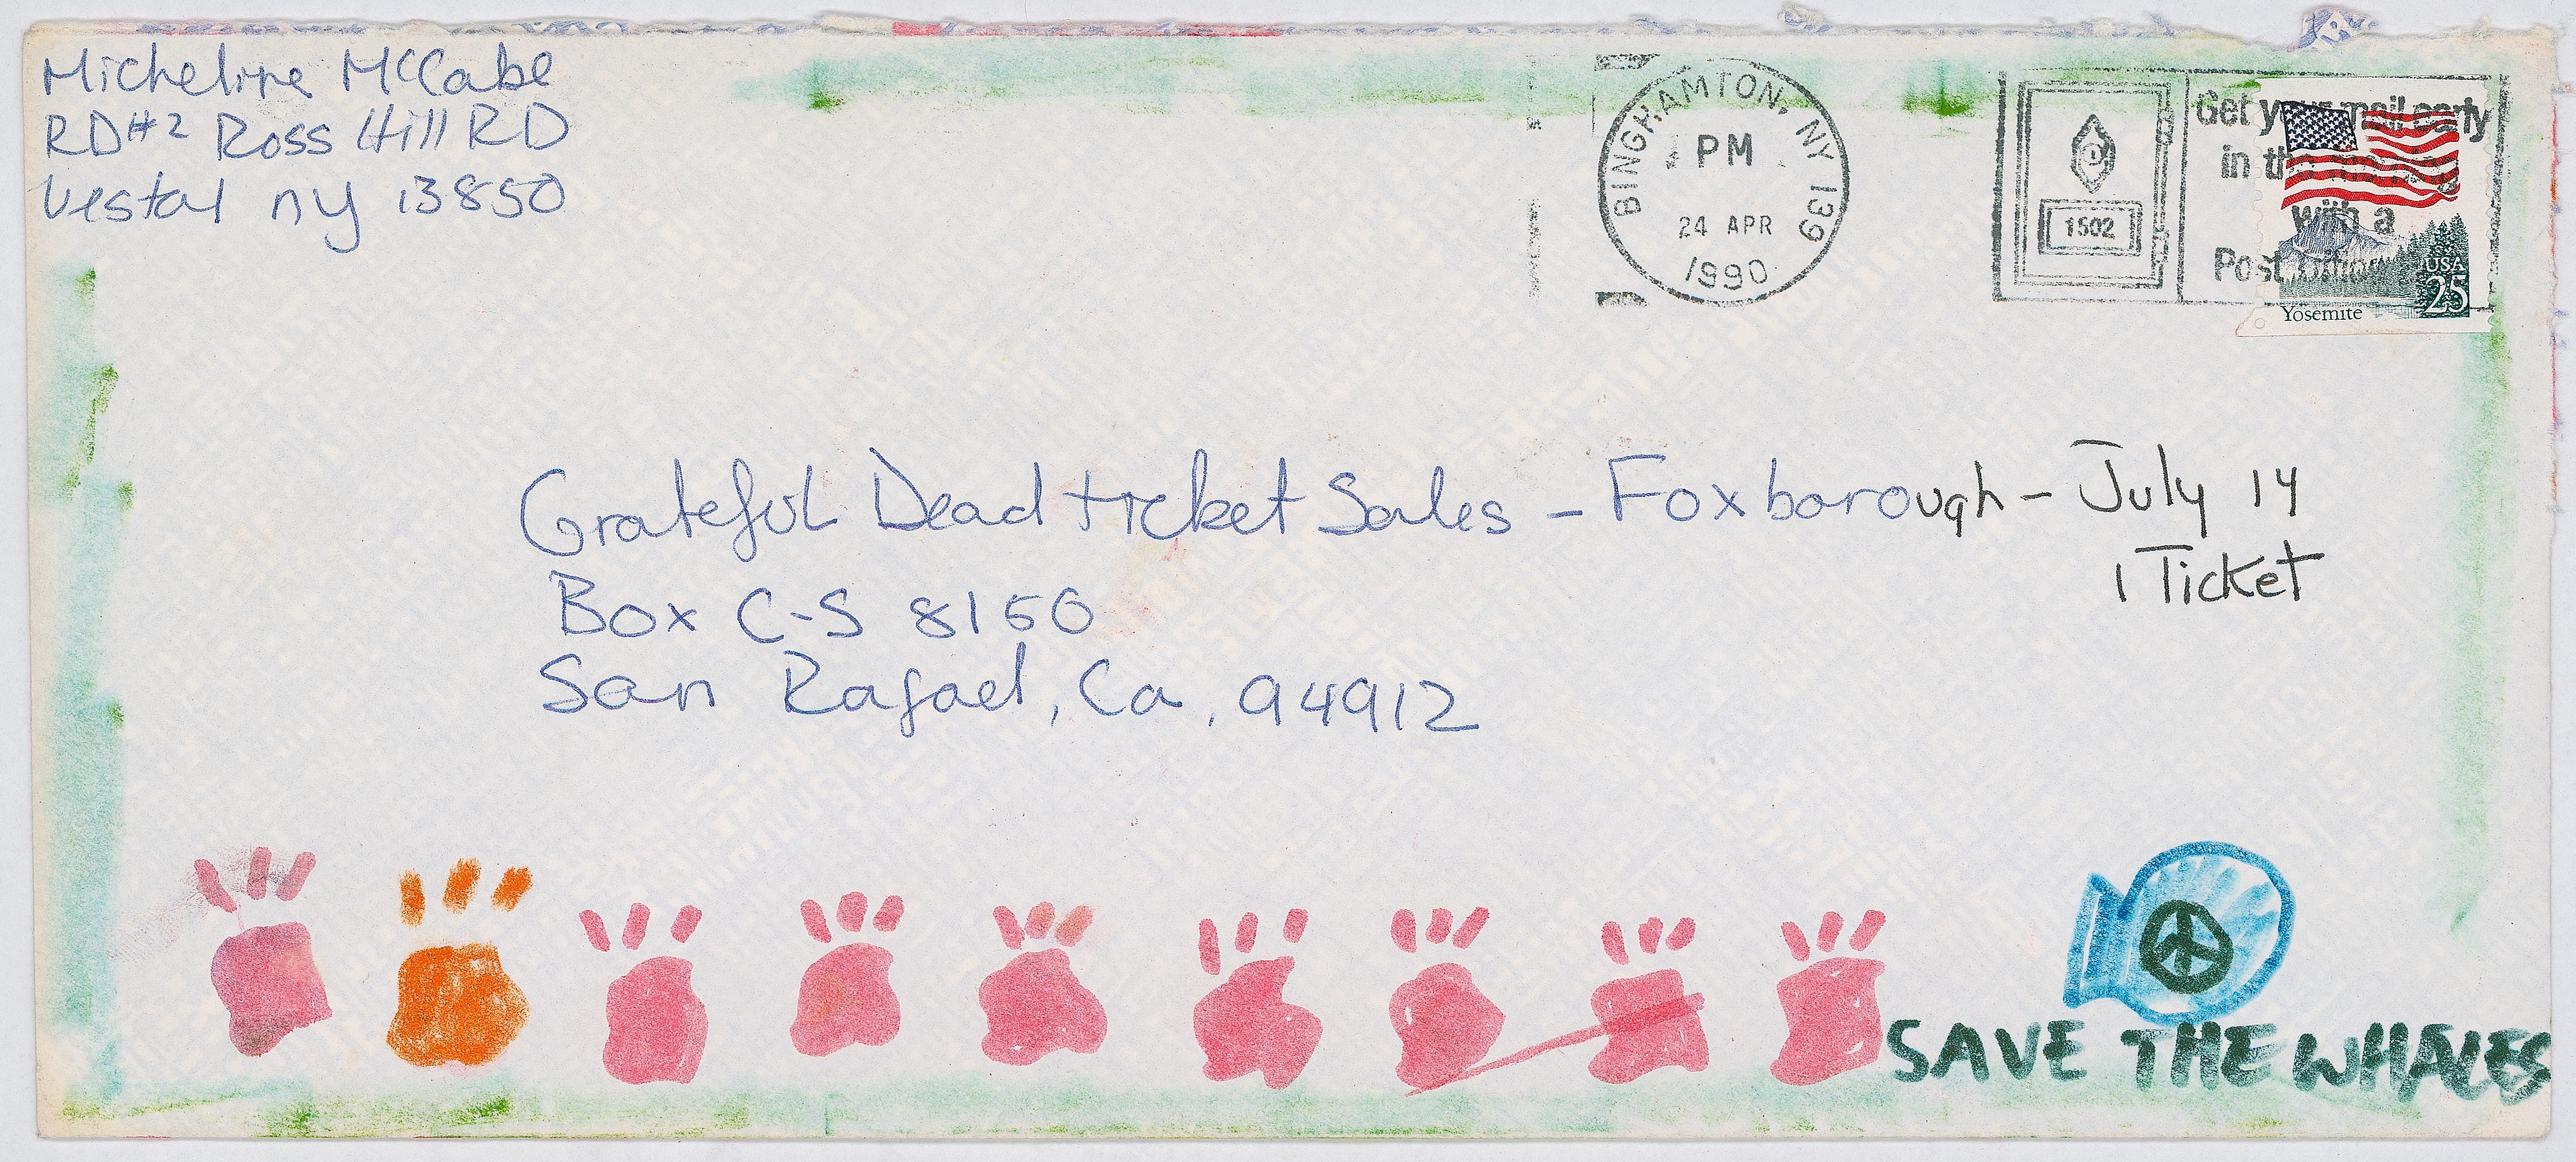 Micheline McCabe
RD#2 Ross Hill RD
Vestal ny 13850
BINGHAMTON, NY 139
PM
24 APR
1990
1502
Get your mail early
in the morning
with a
Post Office
USA
25
Yosemite
Grateful Dead ticket Sales - Foxborough - July 14
1 Ticket
Box C-S 8150
San Rafael, Ca, 94912
SAVE THE WHALES